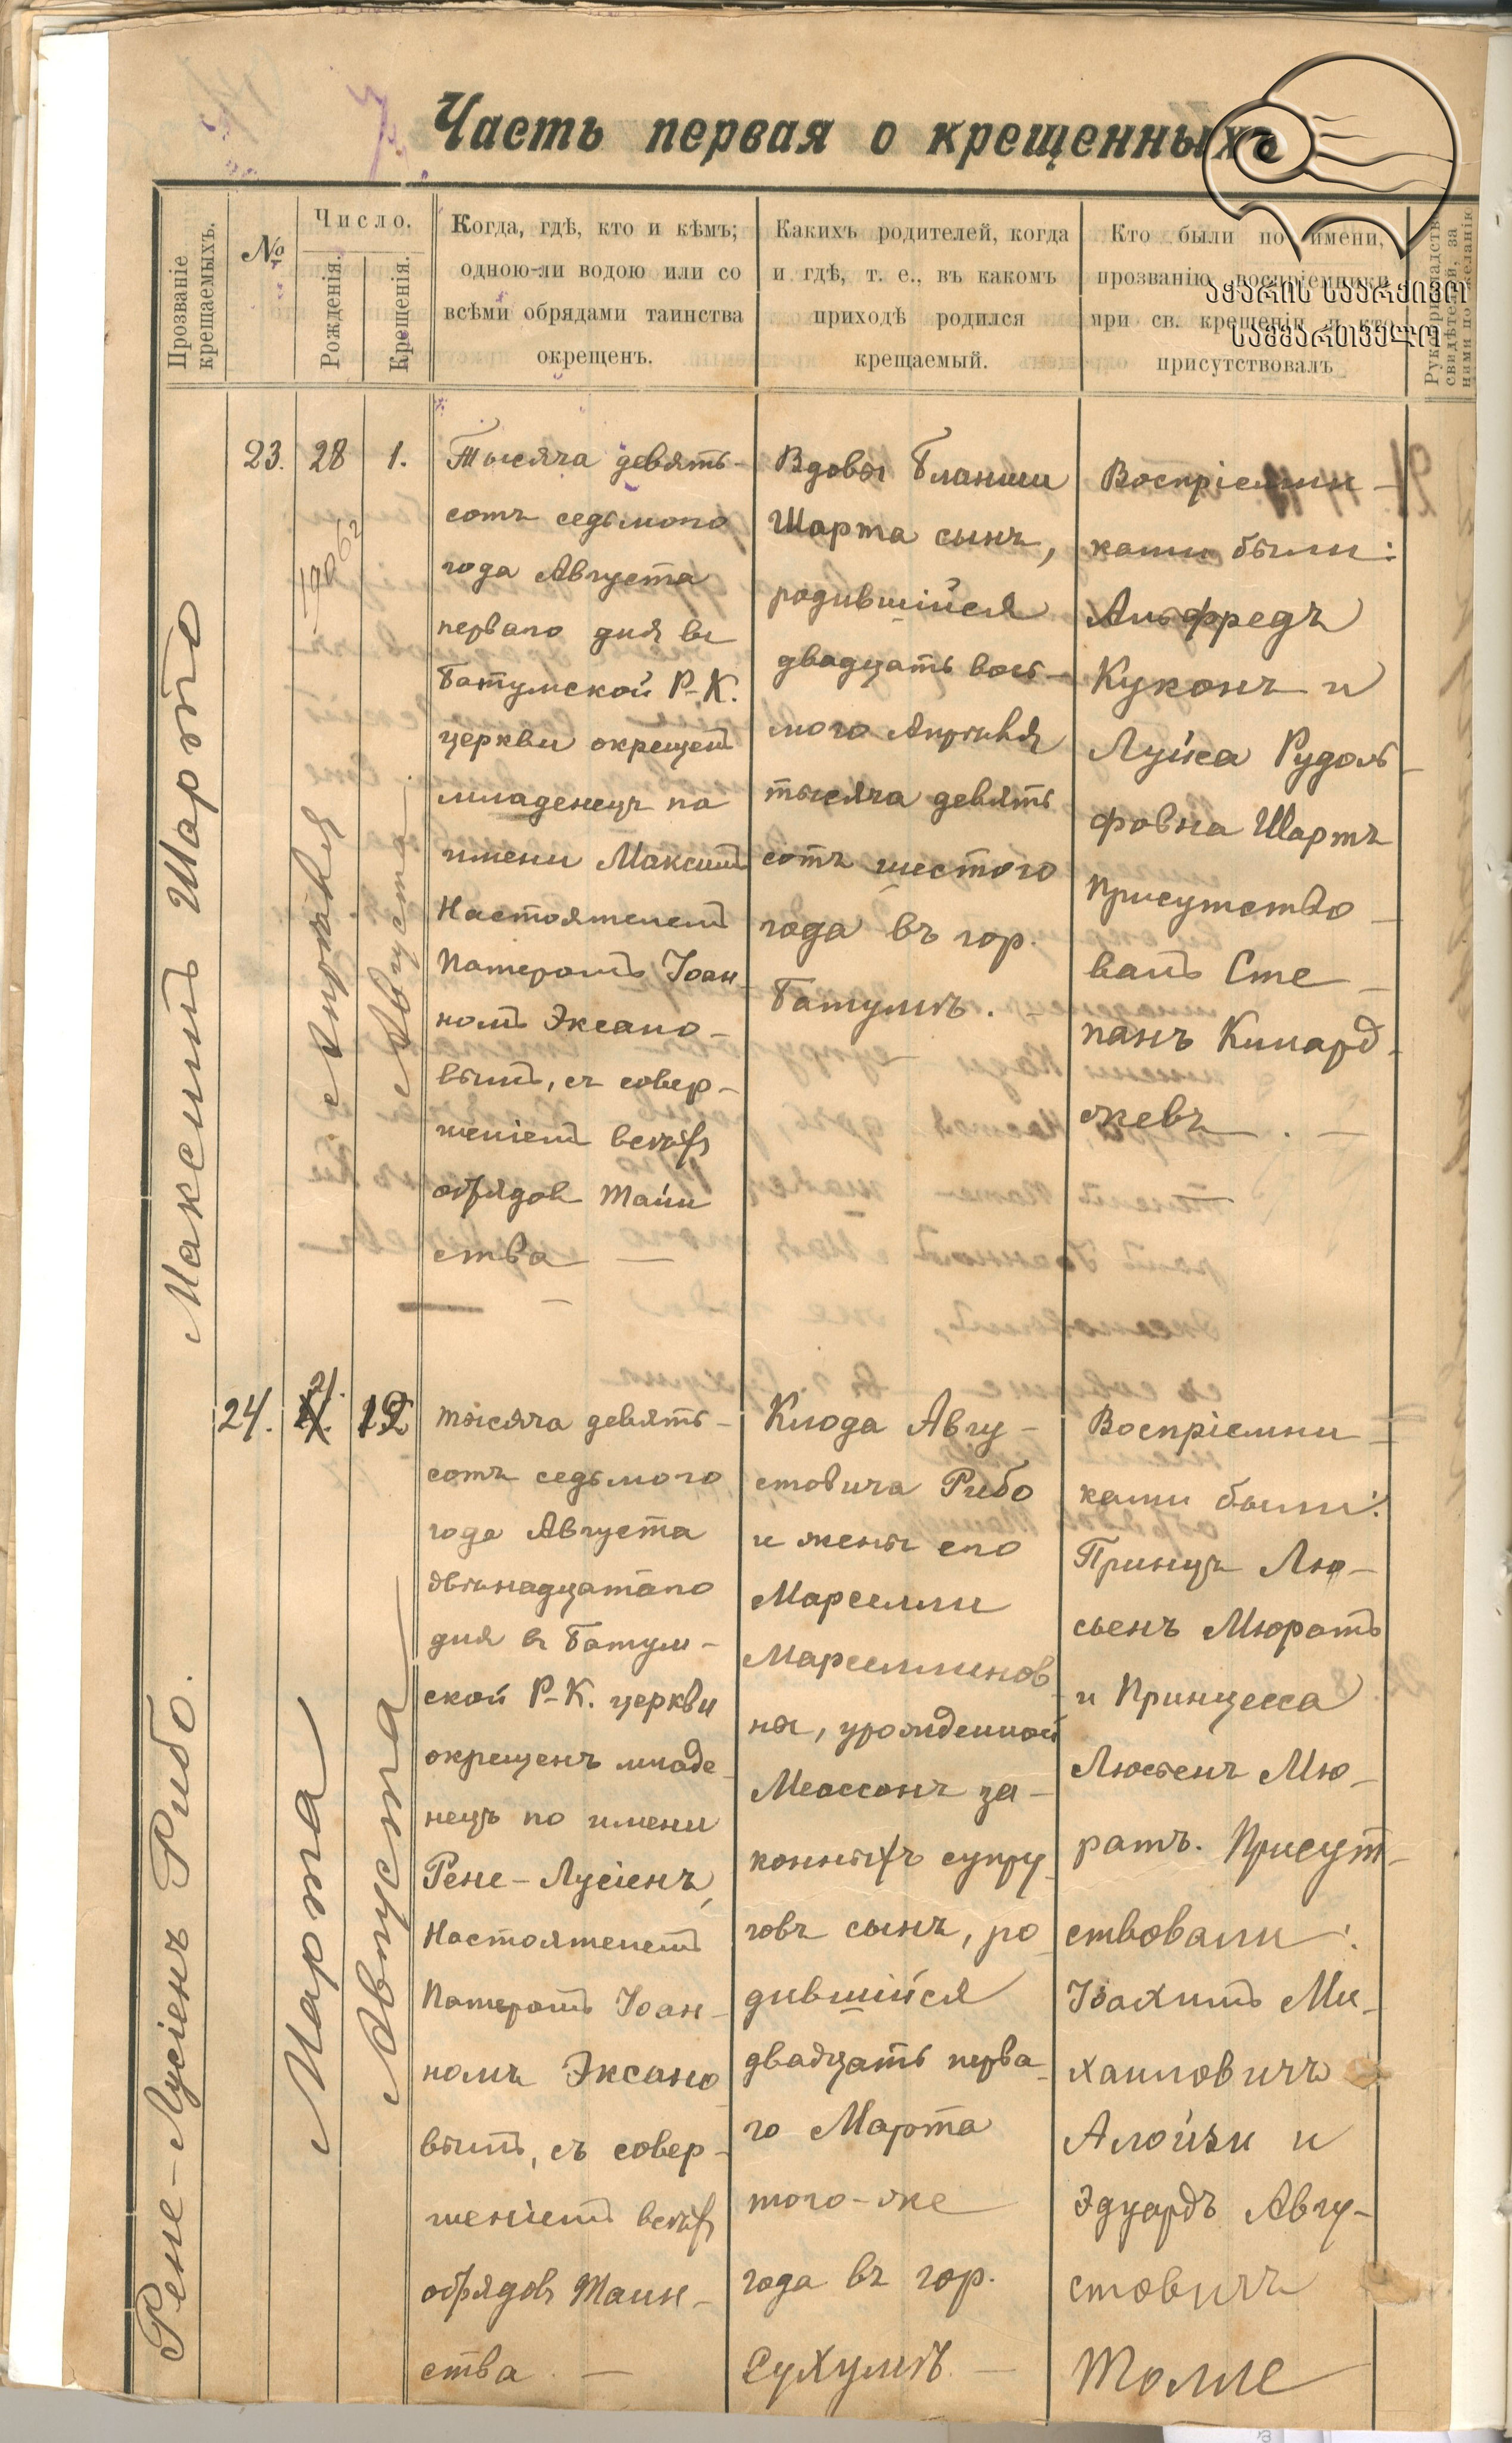 Часть первая о крещенныхъ
აჭარის საარქივო
სამმართველო
Прозваніе
крещаемыхъ.
№
Число.
Рожденія.
Крещенія.
Когда, гдѣ, кто и кѣмъ;
одною-ли водою или со
всѣми обрядами таинства
окрещенъ.
Какихъ родителей, когда
и гдѣ, т. е., въ какомъ
приходѣ родился
крещаемый.
Кто были по имени,
прозванію воспріемники
при св. крещеніи и кто
присутствовалъ
Максимъ Шартъ
23.
28
1906 г.
Апрѣля
1.
Августа
Тысяча девять-
сотъ седьмого
года Августа
перваго дня въ
Батумской Р-К.
церкви окрещенъ
младенецъ по
имени Максимъ
Настоятелемъ
Патеромъ Іоан-
номъ Эксано-
вымъ, съ совер-
шеніемъ всѣхъ
обрядовъ Таин
ства —
Вдовы Бланши
Шарта сынъ,
родившійся
двадцать вось-
мого Апрѣля
тысяча девять
сотъ шестого
года въ гор.
Батумѣ. -
Воспріемни-
ками были:
Альфредъ
Куконъ и
Луиса Рудоль-
фовна Шартъ
Присутство-
валъ Сте-
панъ Киард-
жевъ. —
Рене-Лусіенъ Рибо.
24.
21.
Марта
12
Августа
Тысяча девять-
сотъ седьмого
года Августа
двѣнадцатаго
дня въ Батум-
ской Р-К. церкви
окрещенъ младе-
нецъ по имени
Рене-Лусіенъ,
Настоятелемъ
Патеромъ Іоан-
номъ Эксано
вымъ, съ совер-
шеніемъ всѣхъ
обрядовъ Таин-
ства. —
Клода Авгу-
стовича Рибо
и жены его
Марселли
Марселлинов-
ны, урожденной
Меассонъ за-
конныхъ супру-
говъ сынъ, ро-
дившійся
двадцать перва-
го Марта
того-же
года въ гор.
Сухумѣ. —
Воспріемни-
ками были:
Принцъ Лю-
сьенъ Мюратъ
и Принцесса
Люсьенъ Мю-
ратъ. Присут-
ствовали:
Іоахимъ Ми-
хаиловичъ
Алоизи и
Эдуардъ Авгу-
стовичъ
Толле